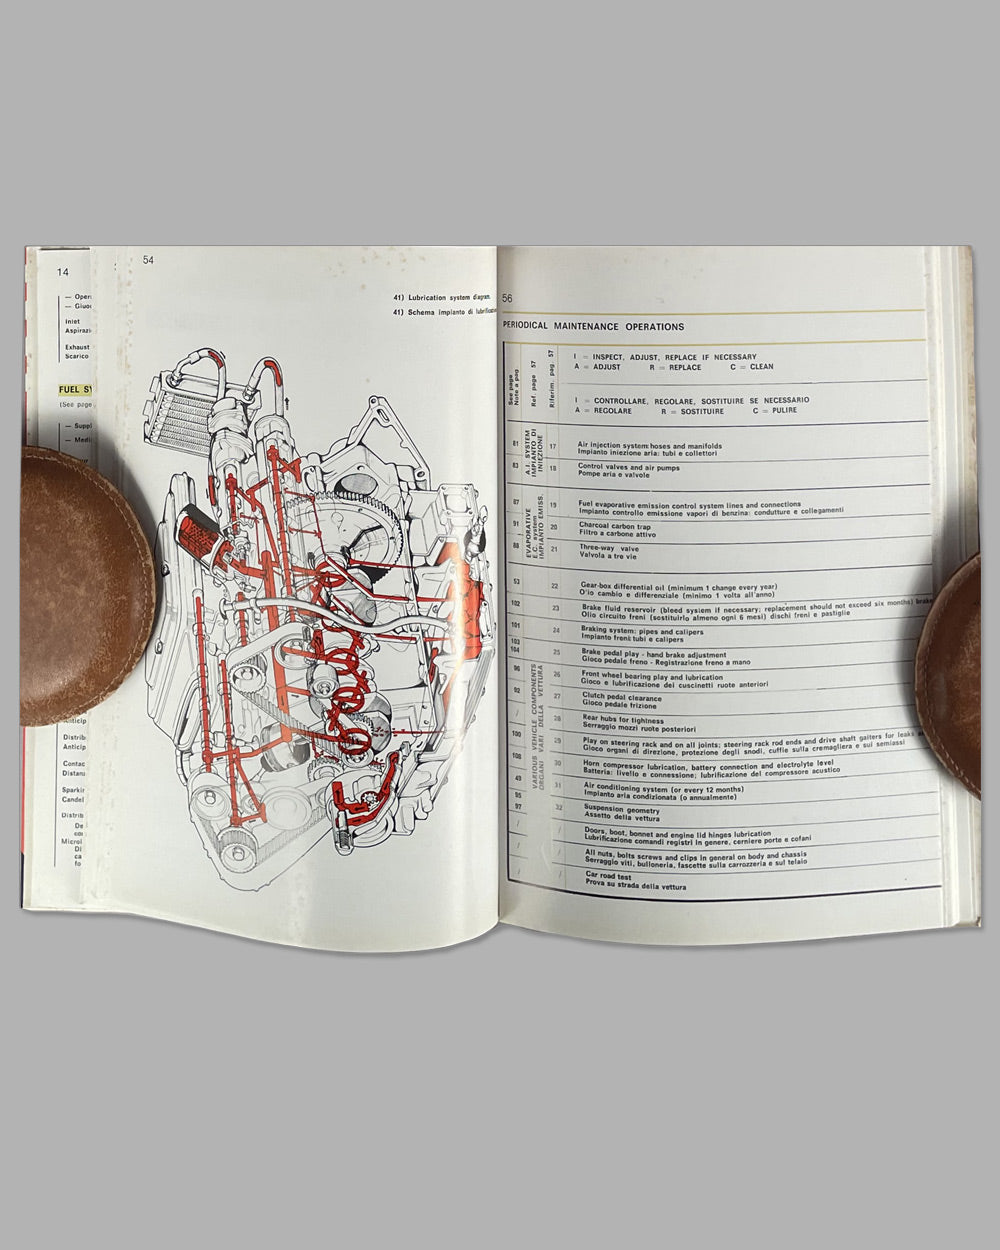 14
— Oper
— Giuo
Inlet
Aspirazi
Exhaust
Scarico
FUEL SY
(See page
— Suppl
— Medi
Anticip
Distrib
Anticip
Contac
Distanz
Sparkin
Candel
Distrib
De
con
Microl
Di
ca
fo
54
41) Lubrication system diagram.
41) Schema impianto di lubrificazio
56
PERIODICAL MAINTENANCE OPERATIONS
See page
Note a pag.
Ref. page 57
Riferim. pag. 57
I = INSPECT, ADJUST, REPLACE IF NECESSARY
A = ADJUST R = REPLACE C = CLEAN
I = CONTROLLARE, REGOLARE, SOSTITUIRE SE NECESSARIO
A = REGOLARE R = SOSTITUIRE C = PULIRE
A.I. SYSTEM
IMPIANTO DI
INIEZIONE
81 17 Air injection system: hoses and manifolds
Impianto iniezione aria: tubi e collettori
83 18 Control valves and air pumps
Pompe aria e valvole
EVAPORATIVE
E.C. system
IMPIANTO EMISS.
87 19 Fuel evaporative emission control system lines and connections
Impianto controllo emissione vapori di benzina: condutture e collegamenti
91 20 Charcoal carbon trap
Filtro a carbone attivo
88 21 Three-way valve
Valvola a tre vie
VARIOUS VEHICLE COMPONENTS
ORGANI VARI DELLA VETTURA
53 22 Gear-box differential oil (minimum 1 change every year)
O'io cambio e differenziale (minimo 1 volta all'anno)
102 23 Brake fluid reservoir (bleed system if necessary: replacement should not exceed six months) brake
Olio circuito freni (sostituirlo almeno ogni 6 mesi) dischi freni e pastiglie
101 24 Braking system: pipes and calipers
Impianto freni: tubi e calipers
103
104 25 Brake pedal play - hand brake adjustment
Gioco pedale freno - Registrazione freno a mano
96 26 Front wheel bearing play and lubrication
Gioco e lubrificazione dei cuscinetti ruote anteriori
92 27 Clutch pedal clearance
Gioco pedale frizione
/ 28 Rear hubs for tighlness
Serraggio mozzi ruote posteriori
100 29 Play on steering rack and on all joints; steering rack rod ends and drive shaft gaiters for leaks
Gioco organi di direzione, protezione degli snodi, cuffie sulla cremagliera e sui semiassi
108 30 Horn compressor lubrication, battery connection and electrolyte level
Batteria: livello e connessione; lubrificazione del compressore acustico
49 31 Air conditioning system (or every 12 months)
Impianto aria condizionata (o annualmente)
95
97 32 Suspension geometry
Assetto della vettura
/ / Doors, boot, bonnet and engine lid hinges lubrication
Lubrificazione comandi registri in genere, cerniere porte e cofani
/ / All nuts, bolts screws and clips in general on body and chassis
Serraggio viti, bulloneria, fascette sulla carrozzeria e sul telaio
/ / Car road test
Prova su strada della vettura